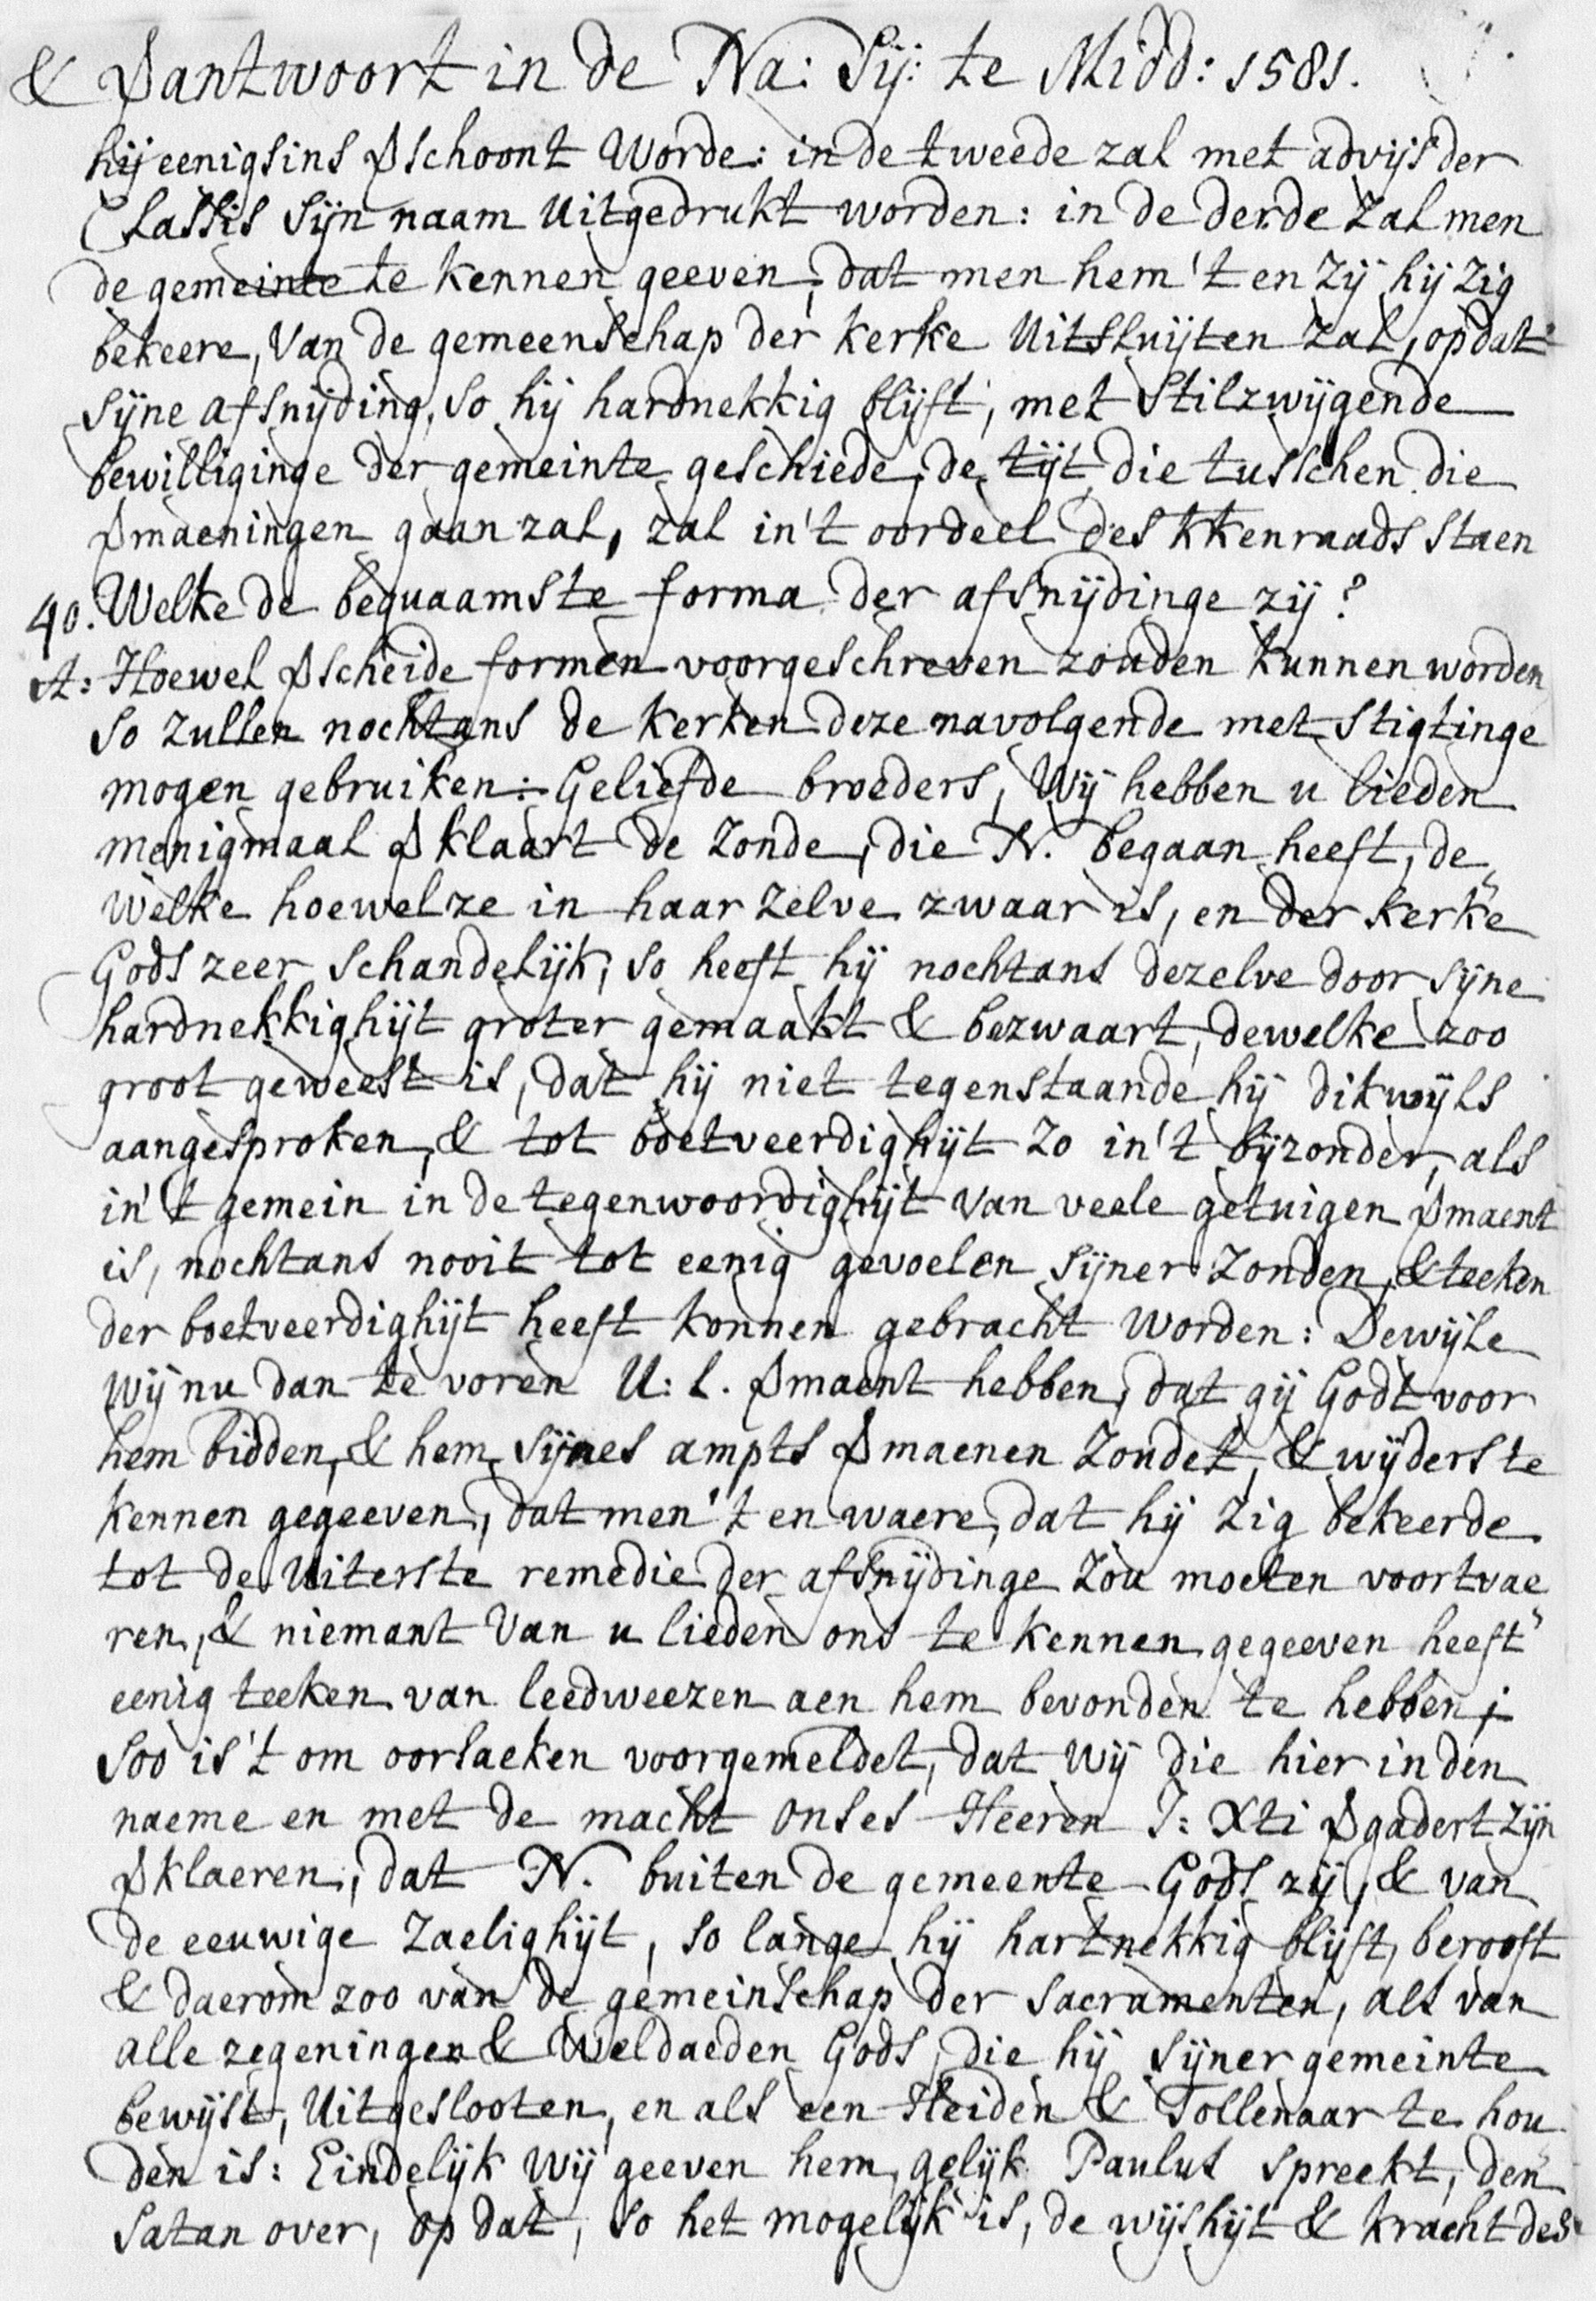 & Vantwoort in de Na: Sij: te Midd: 1581.
hij eenigsins Vschoont Worde: in de tweede zal met advijs der
Classis sijn naam Uitgedrukt worden: in de derde zal men
de gemeinte te kennen geeven, dat men hem 't en zij hij zig
bekeere, Van de gemeenschap der kerke Uitsluijten zal, opdat
sijne afsnijding, so hij hardnekkig blijft, met stilzwijgende
bewilliginge der gemeinte geschiede, de tijt die tusschen die
Vmaeningen gaan zal, zal in't oordeel des kkenraads staen
40. Welke de bequaamste forma der afsnijdinge zij?
A: Hoewel Vscheide formen voorgeschreven zouden kunnen worden
so zullen nochtans de kerken deze navolgende met stigtinge
mogen gebruiken: Geliefde broeders, Wij hebben u lieden
menigmaal Vklaart de zonde, die N. begaan heeft, de„
welke hoewel ze in haar zelve zwaar is, en der kerke
Gods zeer schandelijk, so heeft hij nochtans dezelve door sijne
hardnekkighijt groter gemaakt & bezwaart, dewelke zoo
groot geweest is, dat hij niet tegenstaande hij dikwijls
aangesproken, & tot boetveerdighijt zo in't bijzonder, als
in't gemein in de tegenwoordighijt van veele getuigen Vmaent
is, nochtans nooit tot eenig gevoelen sijner zonden, & teeken
der boetveerdighijt heeft konnen gebracht worden: Dewijle
wij nu dan te voren U: l. Vmaent hebben, dat gij Godt voor
hem bidden, & hem sijnes ampts Vmaenen zoudet, & wijders te
kennen gegeeven, dat men 't en waere, dat hij zig bekeerde
tot de Uiterste remedie der afsnijdinge zou moeten voortvae
ren, & niemant Van u lieden ons te kennen gegeeven heeft
eenig teeken van leedweezen aen hem bevonden te hebben;
soo is 't om oorsaeken voorgemeldet, dat wij die hier in den
naeme en met de macht onses Heeren J: Xti Vgadert zijn
Vklaeren, dat N. buiten de gemeente Gods zij, & van
de eeuwige zaelighijt, so lange hij hartnekkig blijft, berooft
& daerom zoo van de gemeinschap der sacramenten, als van
alle zegeningen & Weldaeden Gods, die hij sijner gemeinte
bewijst, Uitgeslooten, en als een Heiden & Tollenaar te hou
den is: Eindelijk wij geeven hem, gelijk Paulus spreekt, den
satan over, op dat, so het mogelijk is, de wijshijt & kracht des